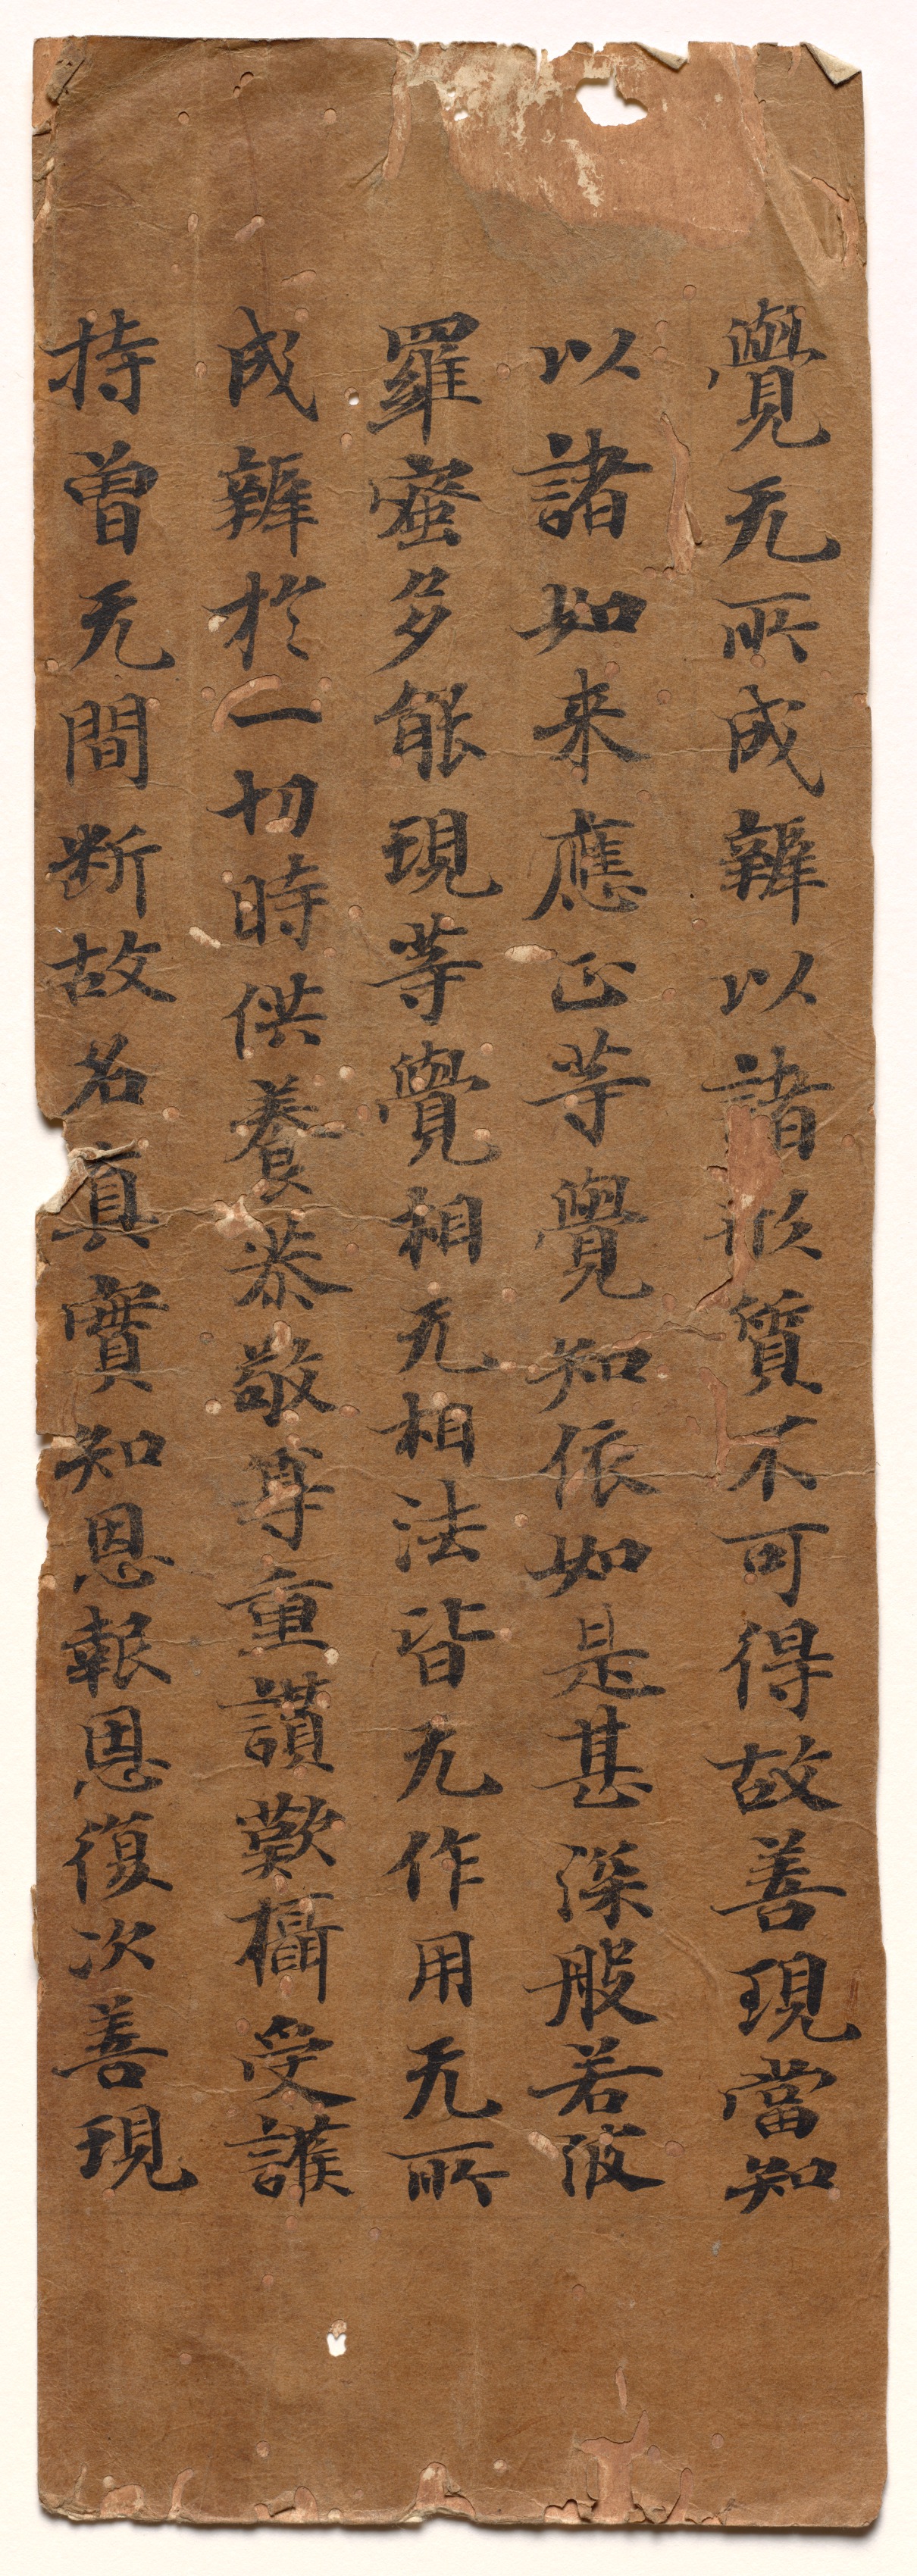 覺无所成辦以諸形質不可得故善現當知
以諸如来應正等覺知依如是甚深般若波
羅蜜多能現等覺相无相法皆无作用无所
成辦於一切時供養恭敬尊重讚歎攝受護
持曾无間断故名真實知恩報恩復次善現